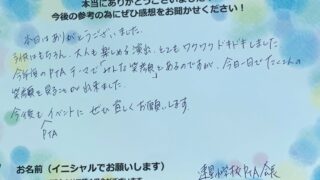 本当にありがとうございました
今後の参考の為にぜひ感想をお聞かせください!
本日はありがとうございました。
子供はもちろん、大人も楽しめる演出、とてもワクワクドキドキしました
今年度のPTAテーマで「みんな笑顔」とあるのですが、今日一日でたくさんの
笑顔を見ることが出来ました。
今後もイベントに ぜひ宜しくお願いします
PTA
お名前(イニシャルでお願いします)
小学校PTA会長